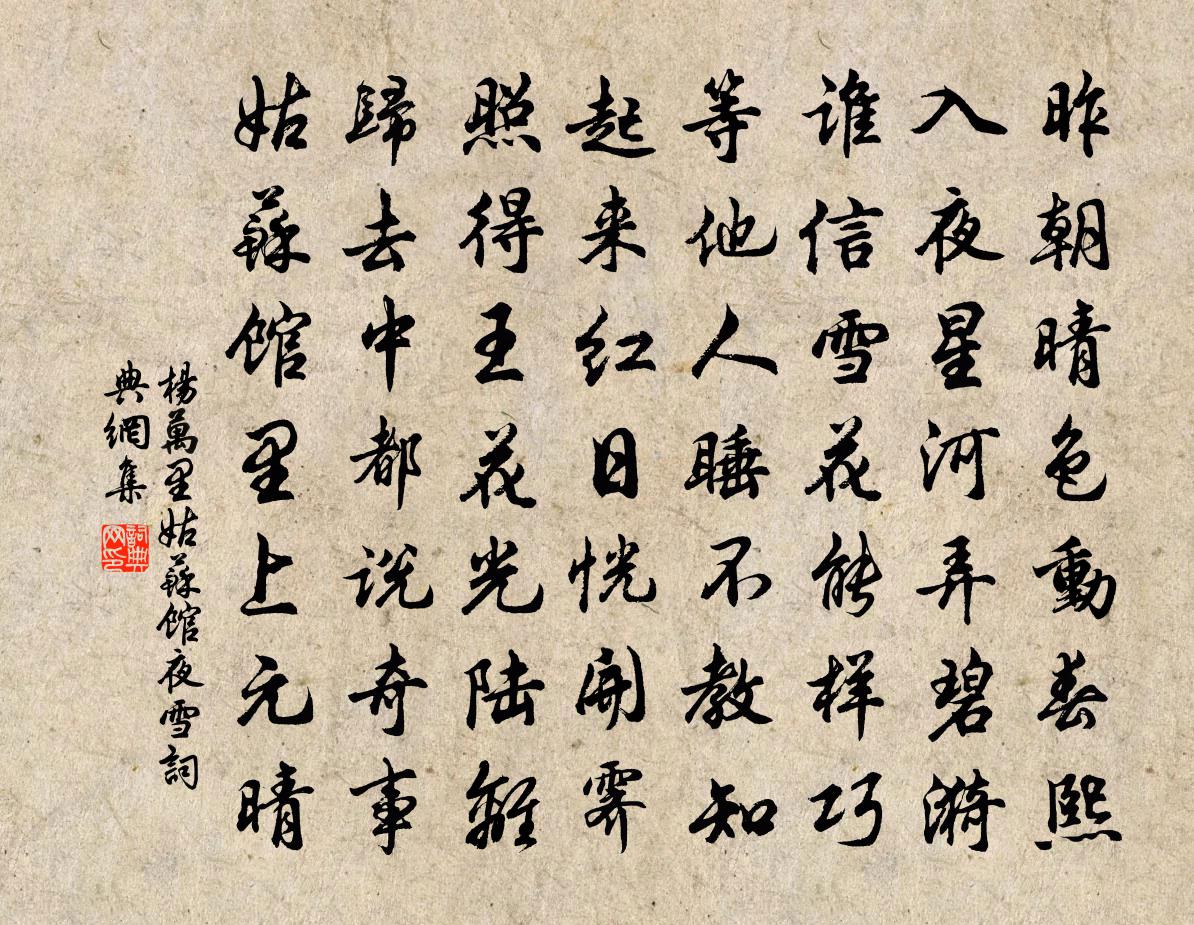 昨朝晴色動春熙
入夜星河弄碧漪
谁信雪花能样巧
等他人睡不教知
起来红日恍開霁
照得王花光陆離
歸去中都说奇事
姑蘇馆里上元晴
楊萬里姑蘇馆夜雪詞
典網集
詞典
网印